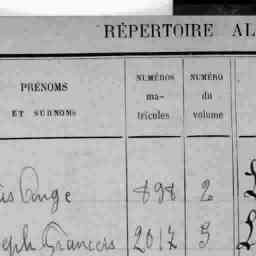 RÉPERTOIRE AL
PRÉNOMS
ET SURNOMS
NUMÉROS
ma-
tricules
NUMÉRO
du
volume
is Ange 898 2 L
eph Francois 2017 5 L